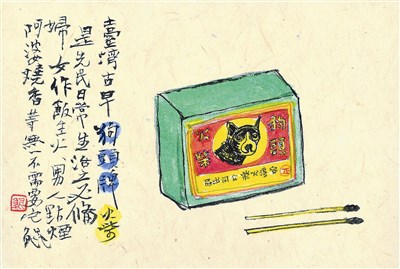 臺灣古早狗頭牌火柴
是先民日常生活必備
婦女作飯生火、男人點煙
阿婆燒香等無不需要它
狗頭
火柴